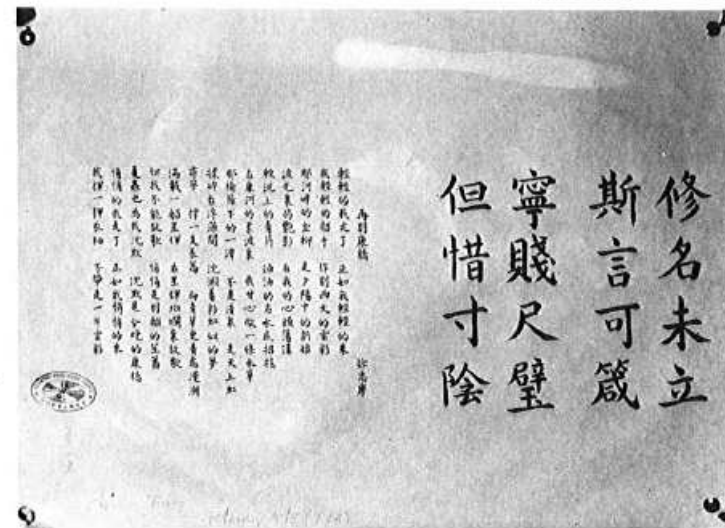 修名未立
斯言可箴
寧賤尺璧
但惜寸陰
再別康橋 徐志摩
輕輕的我走了 正如我輕輕的來
我輕輕的招手 作別西天的雲彩
那河畔的金柳 是夕陽中的新娘
波光裏的艷影 在我的心頭蕩漾
軟泥上的青荇 油油的在水底招搖
在康河的柔波裏 我甘心做一條水草
那榆蔭下的一潭 不是清泉 是天上虹
揉碎在浮藻間 沈澱着彩虹似的夢
尋夢 撐一支長篙 向青草更青處漫溯
滿載一船星輝 在星輝斑斕裏放歌
但我不能放歌 悄悄是別離的笙簫
夏蟲也為我沈默 沈默是今晚的康橋
悄悄的我走了 正如我悄悄的來
我揮一揮衣袖 不帶走一片雲彩